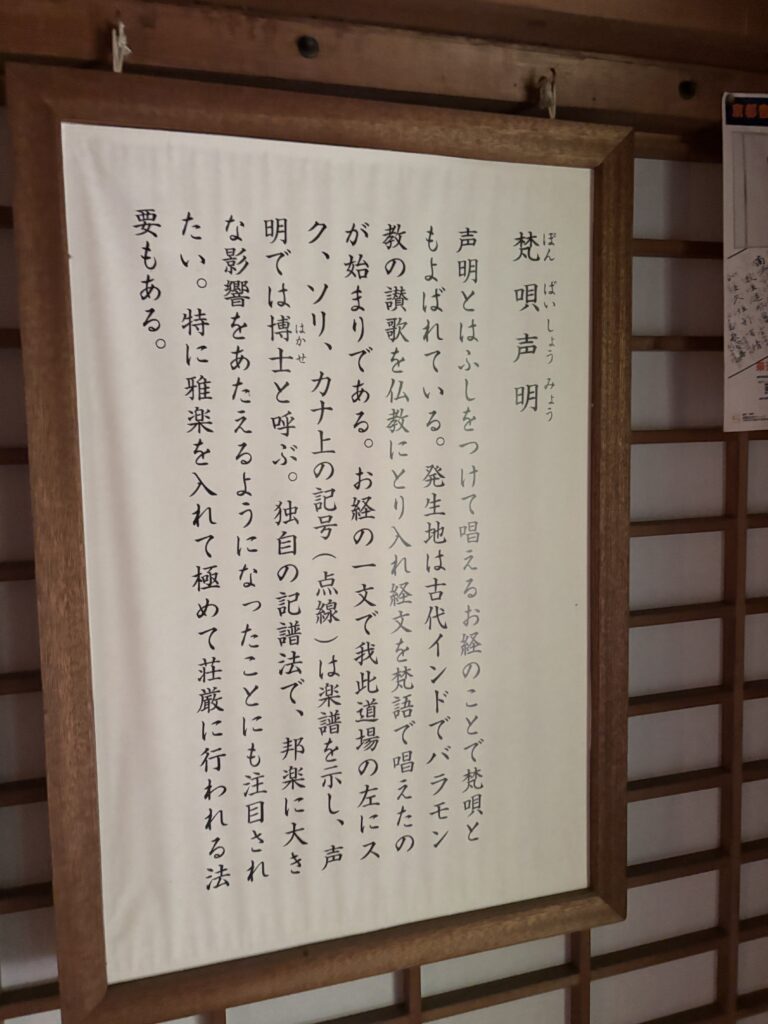 梵唄声明
ぼん ばい しょう みょう
声明とはふしをつけて唱えるお経のことで梵唄と
もよばれている。発生地は古代インドでバラモン
教の讃歌を仏教にとり入れ経文を梵語で唱えたの
が始まりである。お経の一文で我此道場の左にス
ク、ソリ、カナ上の記号（点線）は楽譜を示し、声
明では博士と呼ぶ。独自の記譜法で、邦楽に大き
はかせ
な影響をあたえるようになったことにも注目され
たい。特に雅楽を入れて極めて荘厳に行われる法
要もある。